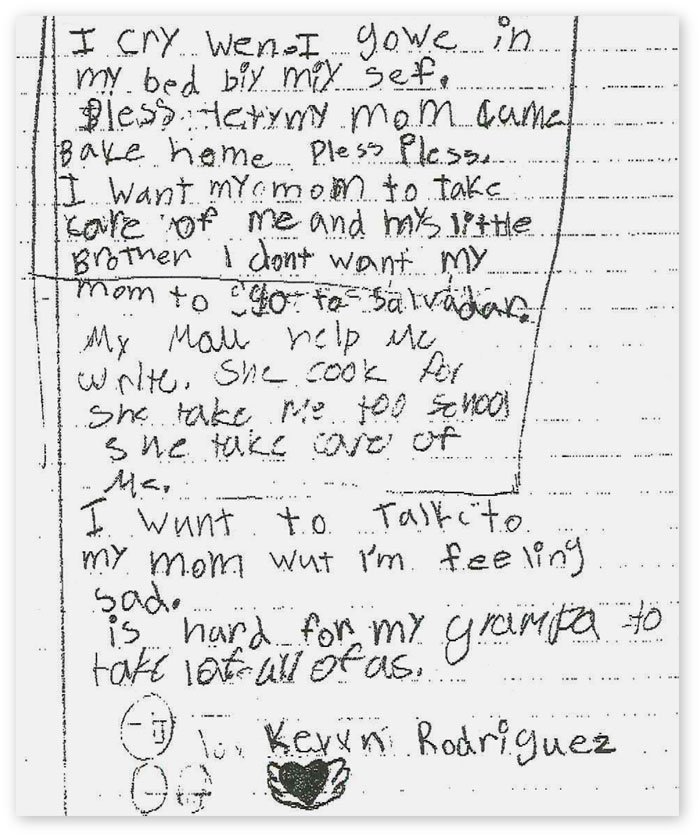 I cry wen I gowe in
my bed biy miy sef.
Pless let my mom came
Bake home Pless Pless.
I want my mom to take
care of me and my little
Brother I dont want my
mom to go to salvadar.
My Mom help Me
write. She cook for
she take Me too school
she take care of
Me.
I wunt to Talk to
my mom wut I'm feeling
sad.
is hard for my grampa to
take all of as.
Kevyn Rodriguez